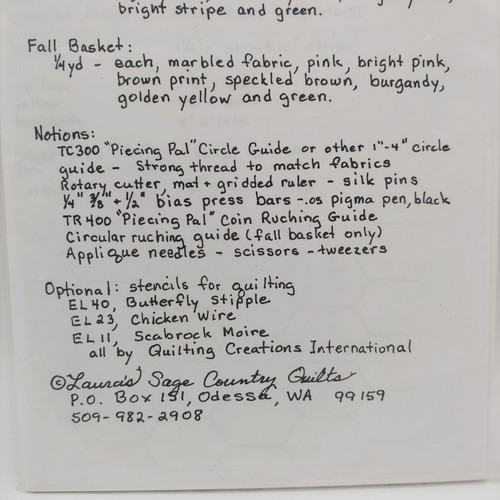 bright stripe and green.
Fall Basket:
1/4 yd - each, marbled fabric, pink, bright pink,
brown print, speckled brown, burgandy,
golden yellow and green.
Notions:
TC300 "Piecing Pal" Circle Guide or other 1"-4" circle
guide - Strong thread to match fabrics
Rotary cutter, mat + gridded ruler - silk pins
1/4" 3/8" + 1/2" bias press bars - .05 pigma pen, black
TR400 "Piecing Pal" Coin Ruching Guide
Circular ruching guide (fall basket only)
Applique needles - scissors - tweezers
Optional: stencils for quilting
EL40, Butterfly Stipple
EL23, Chicken Wire
EL11, Seabrock Moire
all by Quilting Creations International
© Laurcis' Sage Country Quilts
P.O. Box 151, Odessa, WA 99159
509-982-2908